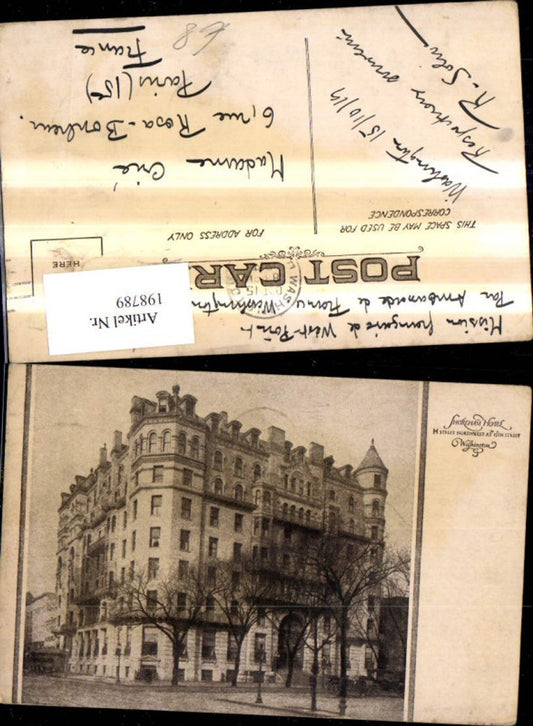 Mission française de West-Point
Par Ambassade de France Washington
POST CARD
WASH
THIS SPACE MAY BE USED FOR
CORRESPONDENCE
FOR ADDRESS ONLY
HERE
Washington 15/10/19
Respectueux souvenir
R. Solin
Madame Crié
6, rue Rosa-Bonheur.
Paris (15e)
France
Artikel Nr.
198789
SHOREHAM HOTEL
H STREET NORTHWEST AT 15TH STREET
Washington